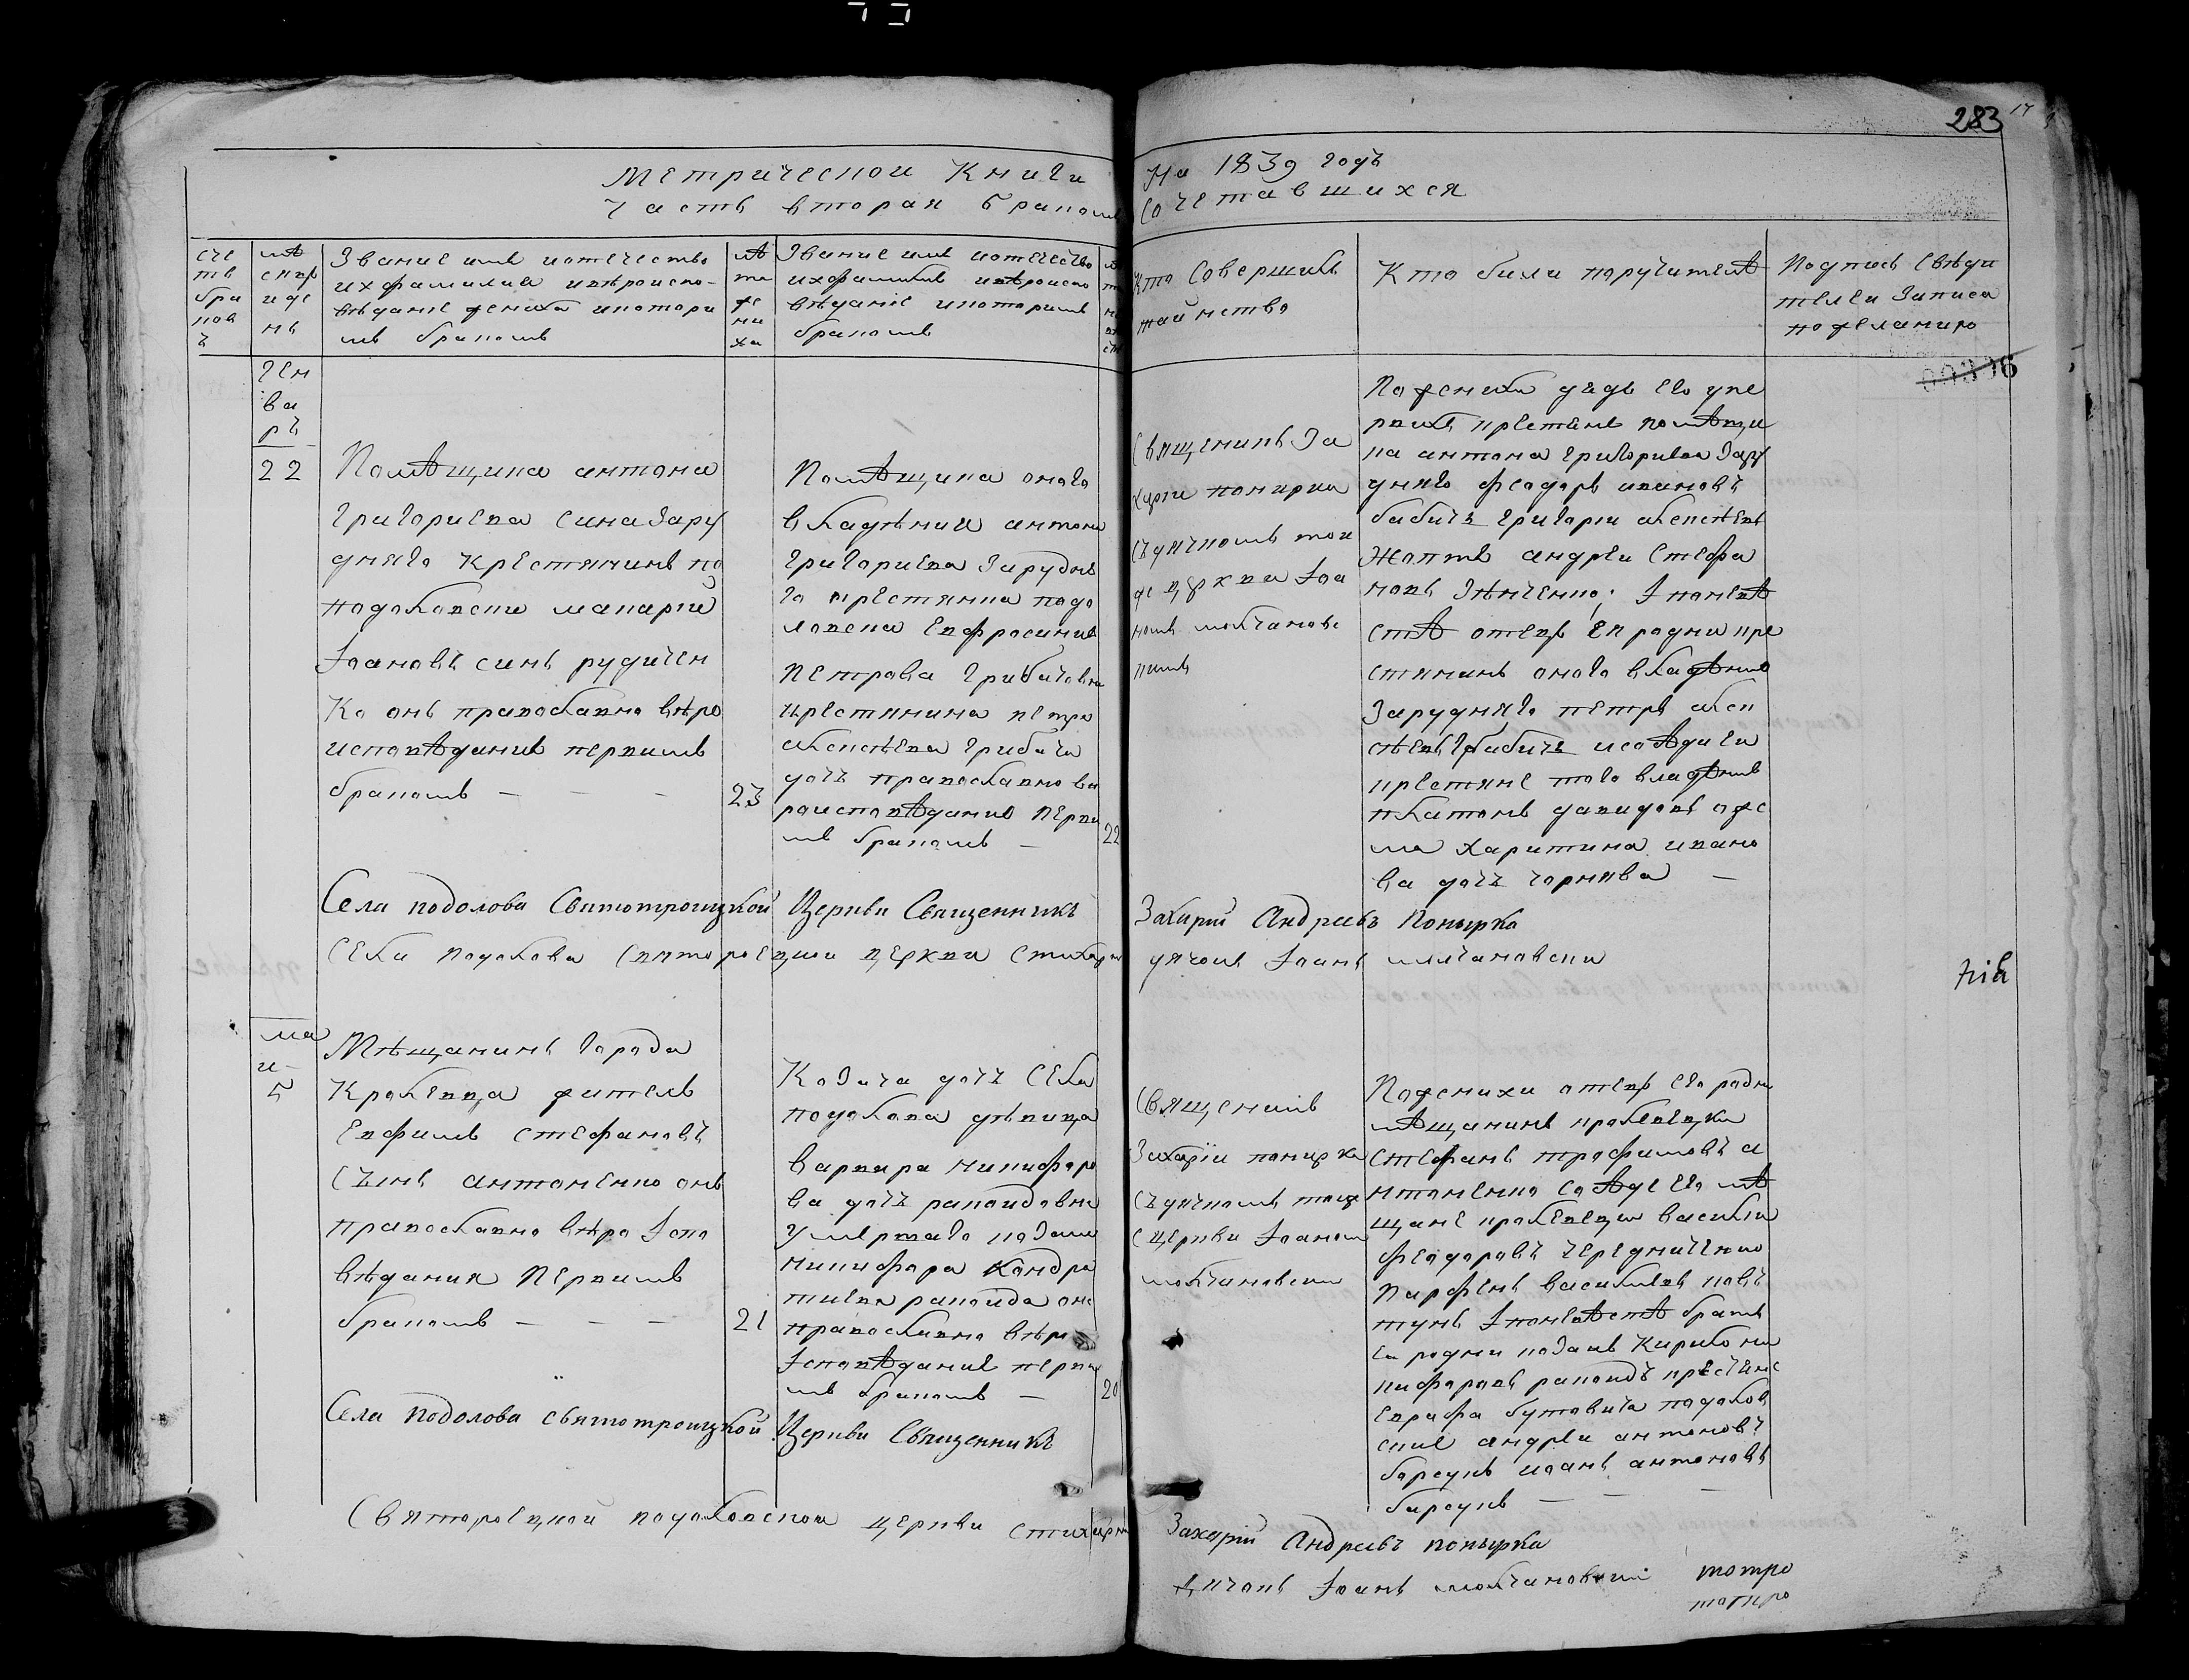 283
17
Метрической Книги
На 1839 годъ
часть вторая бракомъ
сочетавшихся
сче
тъ
бра
ков
ъ
мѣ
сяц
и де
нь
Званіе имѣ и отечество
их фамиліе и вѣроиспо-
вѣданіе жениха и котори
мъ бракомъ
лѣ
та
же
ни
ха
Званіе имѣ и отечество
их фамиліе и вѣроиспо
вѣданіе и которимъ
бракомъ
Кто Совершилъ
таинство
Кто били поручителѣ
Подпись Свѣди
телеи Записа
по желанию
00306
ген
ва
ръ
22
Помѣщика антона
Григориева сина Зару
дняго Крестянинъ по
подоловски макарие
Іоановъ синъ рудичен
Ко онъ православно вѣро
исповѣдание первимъ
бракомъ — — —
23
Помѣщика оного
владѣние антона
Григориева Зарудне
го крестянка подо
ловска Евфросиние
Петрова Грибичовна
крестянина петра
алексѣева Грибича
дочъ православно вѣ
роисповѣдание перви
мъ бракомъ —
22
Священикъ За
харіи понирка
съ дячкомъ тои
же церкви Іоа
номъ молчановс
кимъ
По жениха дядь его уке
рвихъ крестяне помѣщи
ка антона Григориева Зару
дняго Феодоръ ивановъ
бабичъ Григоріи алексѣевъ
Жоптъ андреи Стефа
новъ Зѣнченко; І поневѣ
стѣ отецъ Ея родни кре
стянинъ оного владѣние
Зарудняго петръ алек
сѣевъ Грибичъ и соѣдиеи
крестяне того владѣние
платонъ давидовъ с же
ма Харитина ивано
ва дочъ чорнява —
Села подолова Святотроицкой Церкви Священникъ
Захарій Андреевъ Понырка
Села Подолова Святотроецкои церкви Стихарни
дячокъ Іоанъ молчановски
ма
и
5
Мѣщанинъ города
Кролевца житель
Евфимъ Стефановъ
Сынъ антоненко онъ
православно вѣро Іспо
вѣдания Первимъ
бракомъ — — —
21
Козача дочъ Села
подолова дѣвица
варвара никифоро
ва дочъ рапоидовна
Умертаго козаки
никифора Кондра
тиева рапоида она
православно вѣро
Ісповѣдание перви
мъ бракомъ —
20
Священикъ
Захаріи понирка
съ дячкомъ тои ж
е церкви Іоаном
молчановским
По жениха отецъ его родни
мѣщанинъ кролевецки
Стефанъ трофимовъ а
нтоненко соѣде его мѣ
щане кролевеци васили
феодоровъ чередниченко
Парфенъ василиевъ ковъ
тунъ І поневѣстѣ братъ
ея родни козакъ Кирило ни
кифоровъ рапоидъ крестяне
Евграфа бутовича подолов
ские андреи антоновъ
борсукъ иоанъ антоновъ
барсукъ — — —
Села Подолова святотроицкой Церкви Священникъ
Захарій Андреевъ Понырка
Святороецкой подоловской церкви Стихарни
дячокъ Іоанъ молчановский